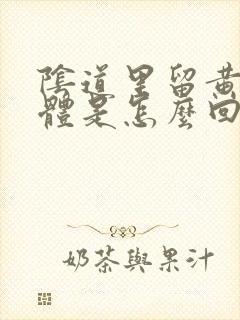 陰道里留黃
體是怎麼回
奶茶與果汁